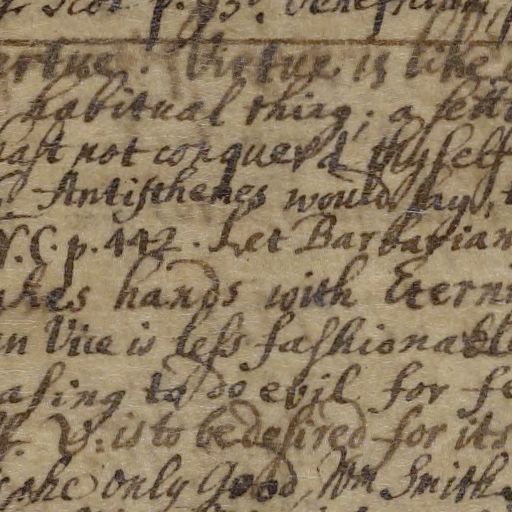 Scot p. 93. Beneficium,
ertue. Virtue is like
habitual thing; a sett
hast not conquer'd thyself
Antisthenes would say,
V. C. p. 442. Let Barbarian
akes hands with Eterni
n Vice is less fashionable
asing to do evil for fe
lf. V. is to be desired for its
s the only Good, Wm Smith